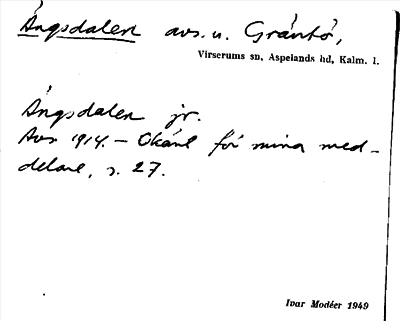 Ängsdalen avs. u. Gräntö,
Virserums sn, Aspelands hd, Kalm. l.
Ängsdalen jr.
Avs 1914. – Okänt för mina med-
delare, s. 27.
Ivar Modéer 1949